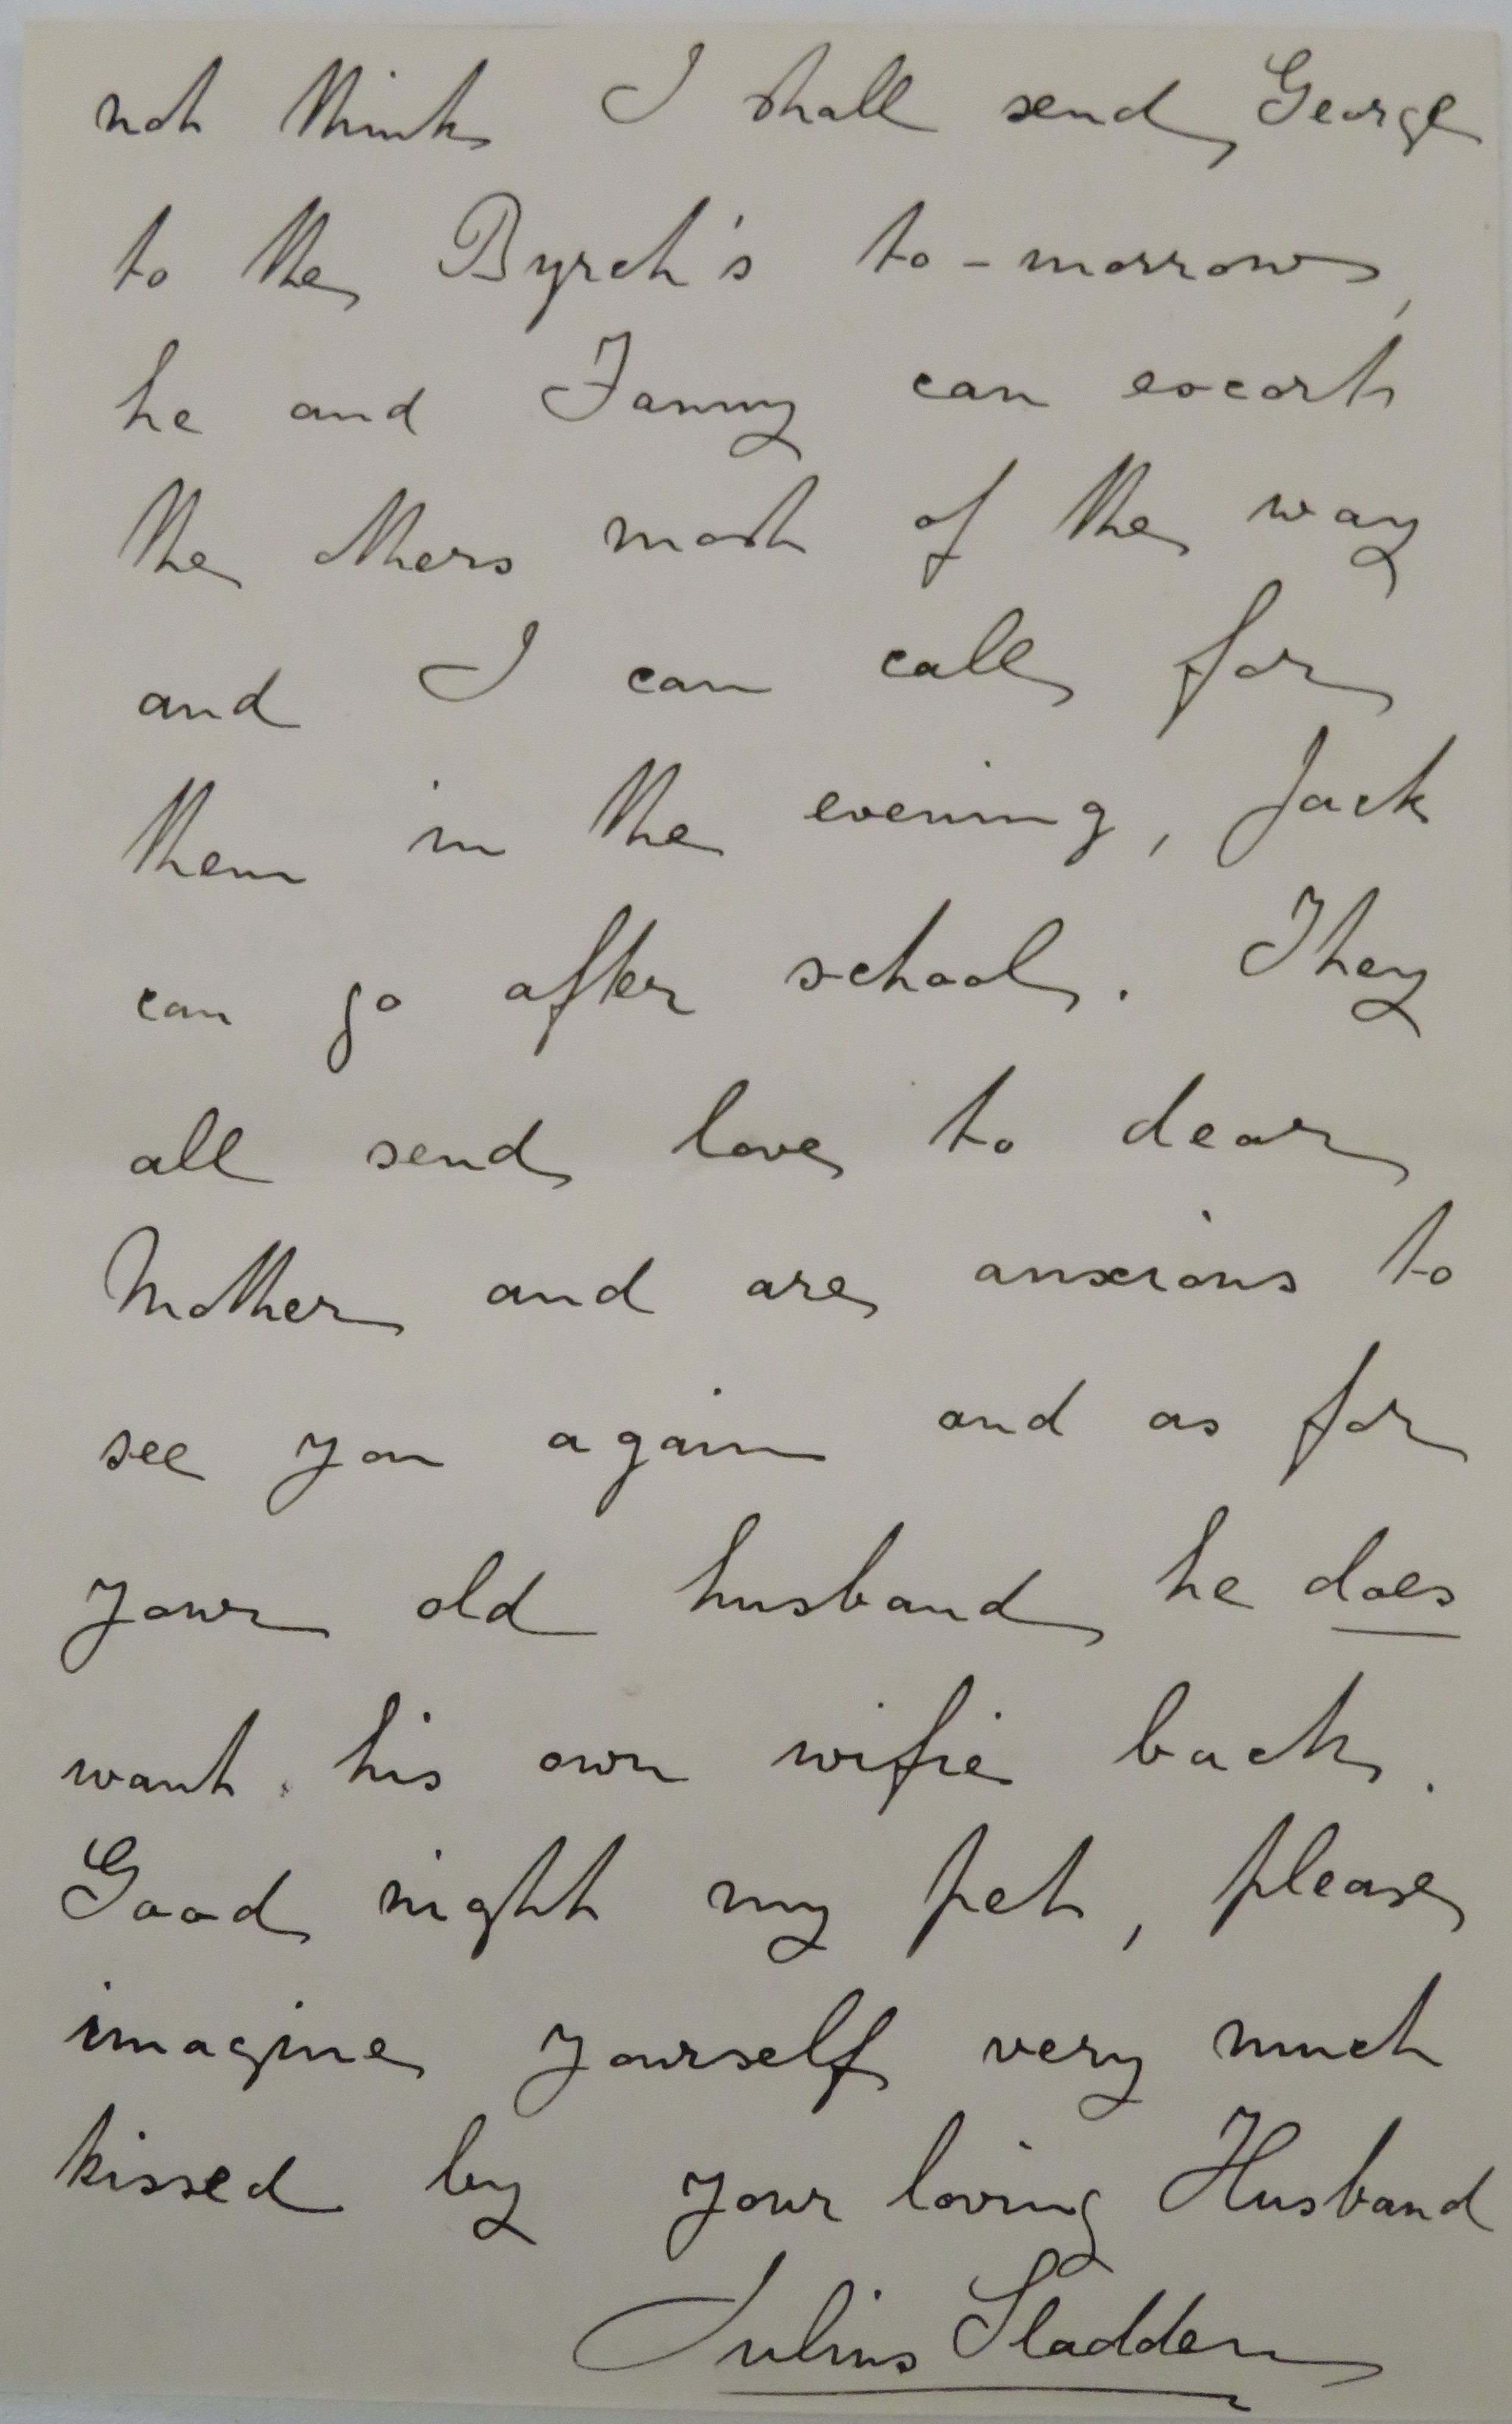 not think I shall send George
to the Byrch's to-morrow,
he and Fanny can escort
the others most of the way
and I can call for
them in the evening, Jack
can go after school. They
all send love to dear
Mother and are anxious to
see you again and as for
your old husband he does
want his own wifie back.
Good night my pet, please
imagine yourself very much
kissed by your loving Husband
Julius Sladden